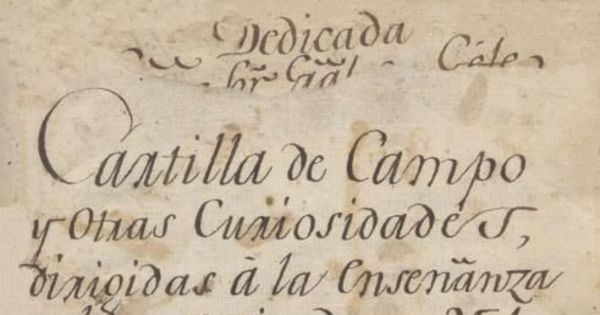 Dedicada
Cartilla de Campo
y Otras Curiosidades,
dirigidas à la Enseñanza